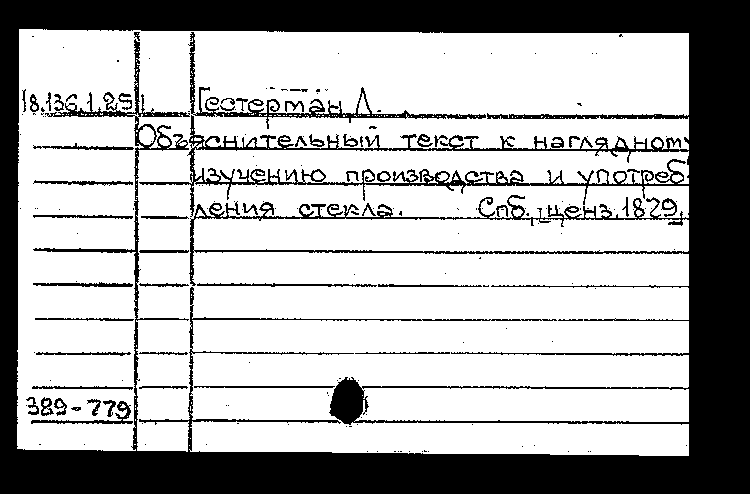 18.136.1.251. Гестерман, Л.
Объяснительный текст к наглядному
изучению производства и употреб-
ления стекла. Спб., ценз. 1829.
389-779